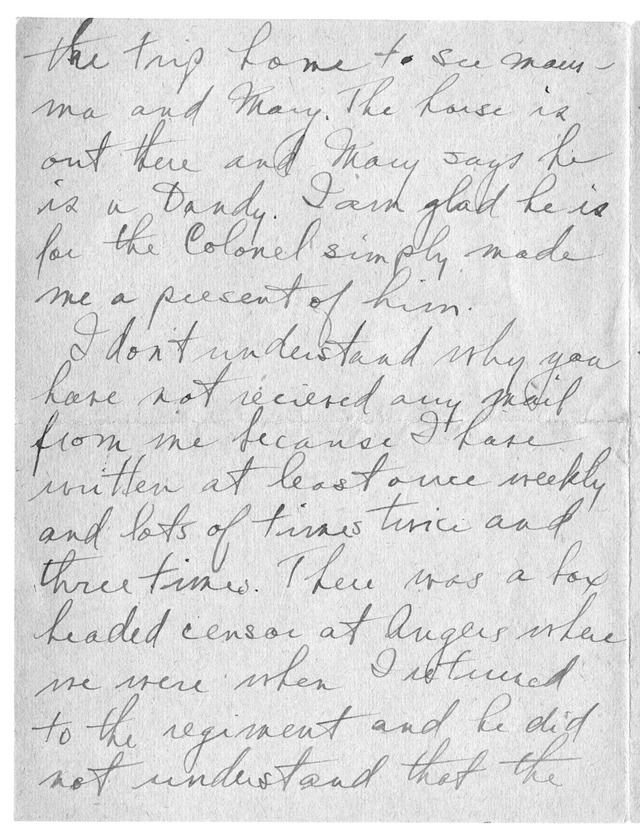 the trip home to see mam-
ma and Mary. The horse is
out there and Mary says he
is a Dandy. I am glad he is
for the Colonel simply made
me a present of him.
I don't understand why you
have not recieved any mail
from me because I have
written at least once weekly
and lots of times twice and
three times. There was a box
headed censor at Angers where
we were when I returned
to the regiment and he did
not understand that the